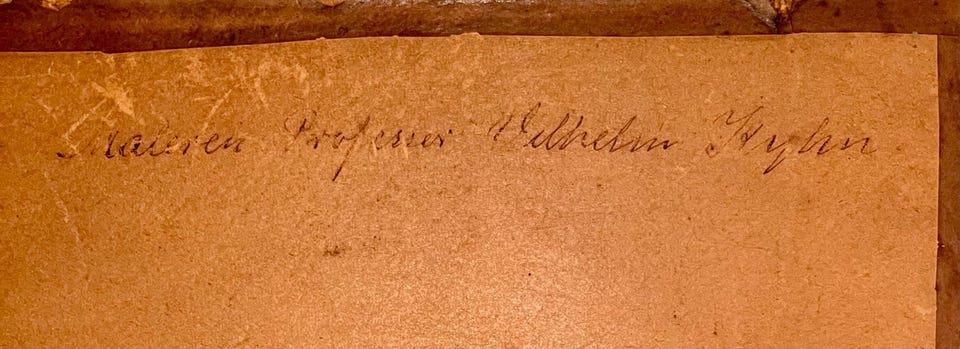 Maleren Professer Vilhelm Kyhn